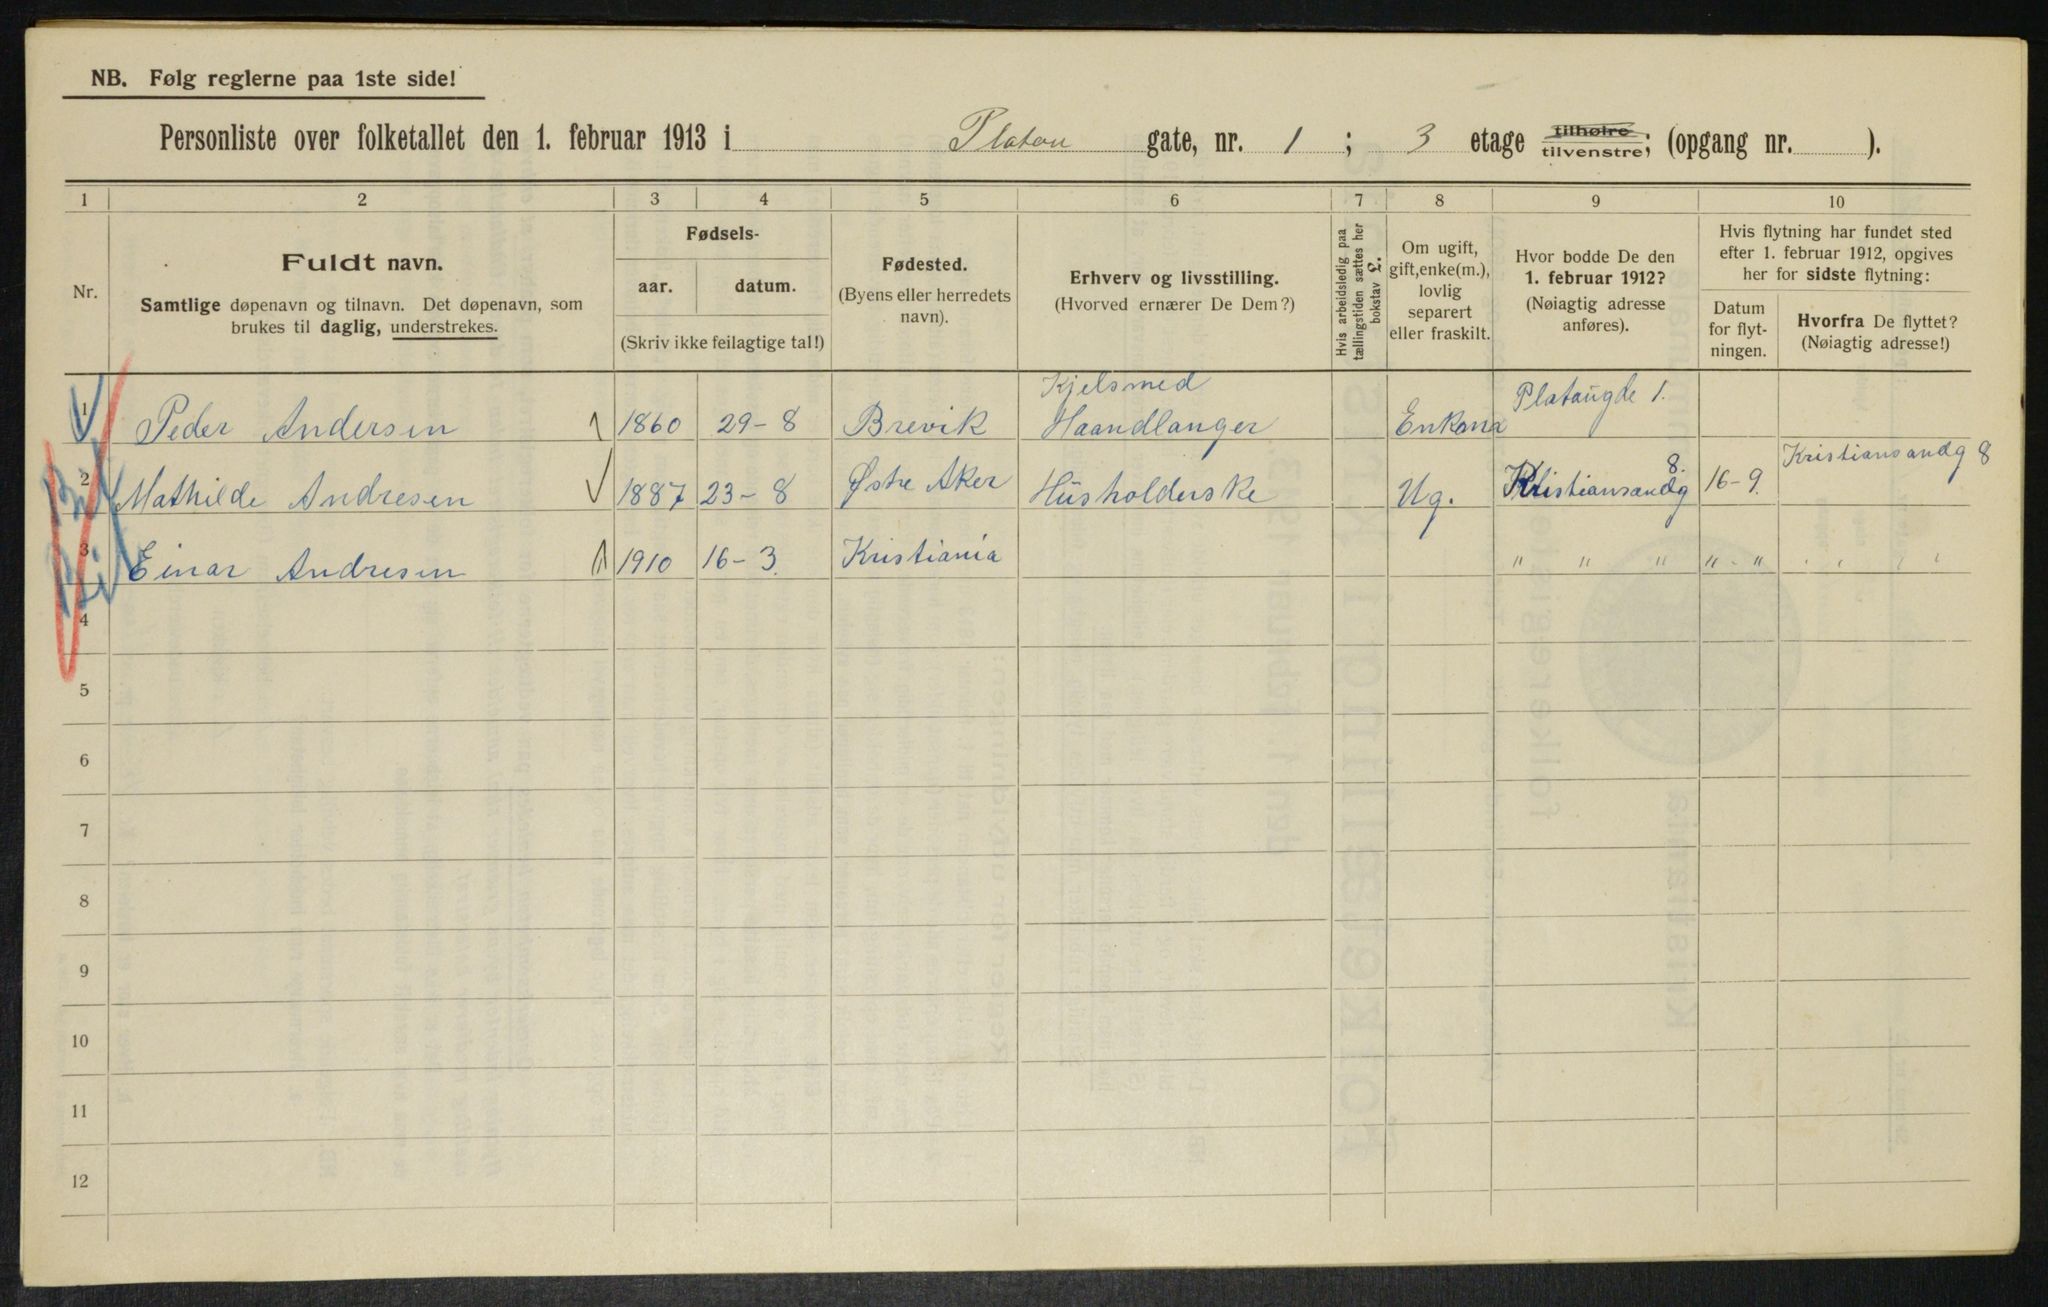 NB. Følg reglerne paa 1ste side!
Personliste over folketallet den 1. februar 1913 i Platou gate, nr. 1 ; 3 etage tilhøire tilvenstre; (opgang nr. ).
1 2 3 4 5 6 7 8 9 10
Nr.
Fuldt navn.
Samtlige døpenavn og tilnavn. Det døpenavn, som
brukes til daglig, understrekes.
Fødsels-
aar. datum.
(Skriv ikke feilagtige tal!)
Fødested.
(Byens eller herredets
navn).
Erhverv og livsstilling.
(Hvorved ernærer De Dem?)
Hvis arbeidsledig paa
tællingstiden sættes her
bokstav L.
Om ugift,
gift, enke(m.),
lovlig
separert
eller fraskilt.
Hvor bodde De den
1. februar 1912?
(Nøiagtig adresse
anføres).
Hvis flytning har fundet sted
efter 1. februar 1912, opgives
her for sidste flytning:
Datum
for flyt-
ningen.
Hvorfra De flyttet?
(Nøiagtig adresse!)
Kjelsmed
1 Peder Andersen 1860 29-8 Brevik Haandlanger Enkma Platougde 1.
2 Mathilde Andresen 1887 23-8 Østre Aker Husholderske Ug. Kristiansandg 8. 16-9. Kristiansandg 8
3 Einar Andresen 1910 16-3. Kristiania " " " " - " " " " "
4
5
6
7
8
9
10
11
12